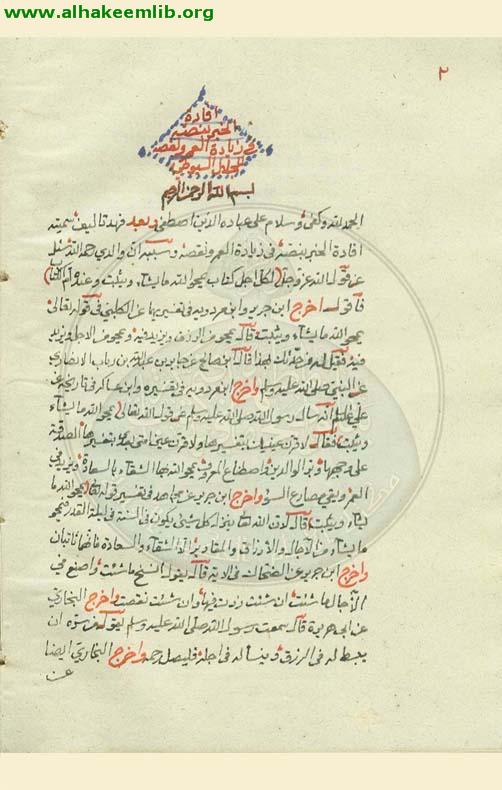 www.alhakeemlib.org
٢
افادة
الخبر بنصه
في زيادة العمر ونقصه
للجلال السيوطي
بسم الله الرحمن الرحيم
الحمد لله وكفى وسلام على عباده الذين اصطفى وبعد فهذا تاليف سميته
افادة الخبر بنصه في زيادة العمر ونقصه وسببه ان والدي رحمه الله سئل
عن قوله الله عز وجل لكل اجل كتاب يمحو الله ما يشاء ويثبت وعنده ام الكتاب
فاقول اخرج ابن جرير وابن مردويه في تفسيريهما عن الكلبي في قوله تعالى
يمحو الله ما يشاء ويثبت قال يمحو من الرزق ويزيد فيه ويمحو من الاجل ويزيد
فيه فقيل له من حدثك بهذا قال ابو صالح عن جابر بن عبد الله بن رباب الانصاري
عن النبي صلى الله عليه وسلم واخرج ابن مردويه في تفسيره وابن عساكر في تاريخه عن
علي انه سال رسول الله صلى الله عليه وسلم عن قوله تعالى يمحو الله ما يشاء
ويثبت فقال لاقرن عينيك بتفسيرها ولاقرن عين امتي بعدي بتفسيرها الصدقة
على وجهها وبر الوالدين واصطناع المعروف يمحو الله بها الشقاء بالسعادة ويزيد في
العمر ويقي مصارع السوء واخرج ابن جرير عن مجاهد في تفسير قوله تعالى يمحو الله ما
يشاء ويثبت قال الله ينزل كل شئ يكون في السنة في ليلة القدر فيمحو
ما يشاء من الآجال والارزاق والمقادير الا الشقاء والسعادة فانهما ثابتان
واخرج ابن جرير عن الضحاك في الاية قال يقول انسخ ما شئت واصنع في
الآجال ما شئت ان شئت زدت فيها وان شئت نقصت واخرج البخاري
عن ابي هريرة قال سمعت رسول الله صلى الله عليه وسلم يقول من سره ان
يبسط له في الرزق وينسا له في اجله فليصل رحمه واخرج البخاري ايضا
عن